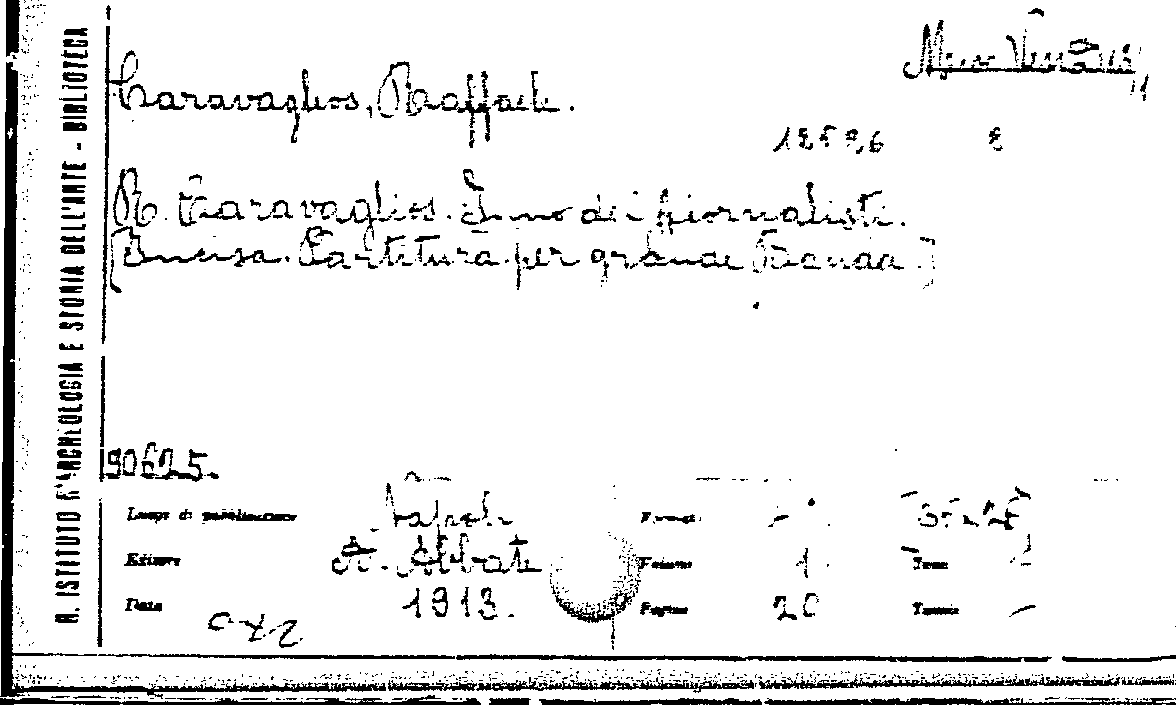 R. ISTITUTO D'ARCHEOLOGIA E STORIA DELL'ARTE - BIBLIOTECA
Caravaglios, Raffaele.
R. Caravaglios. Inno dei giornalisti.
[Incisa. Partitura per grande Banda.]
90625.
Luogo di pubblicazione Napoli Formato
Editore A. Abbate Volume 1.
Data 1913. Pagine 20 Tavole —